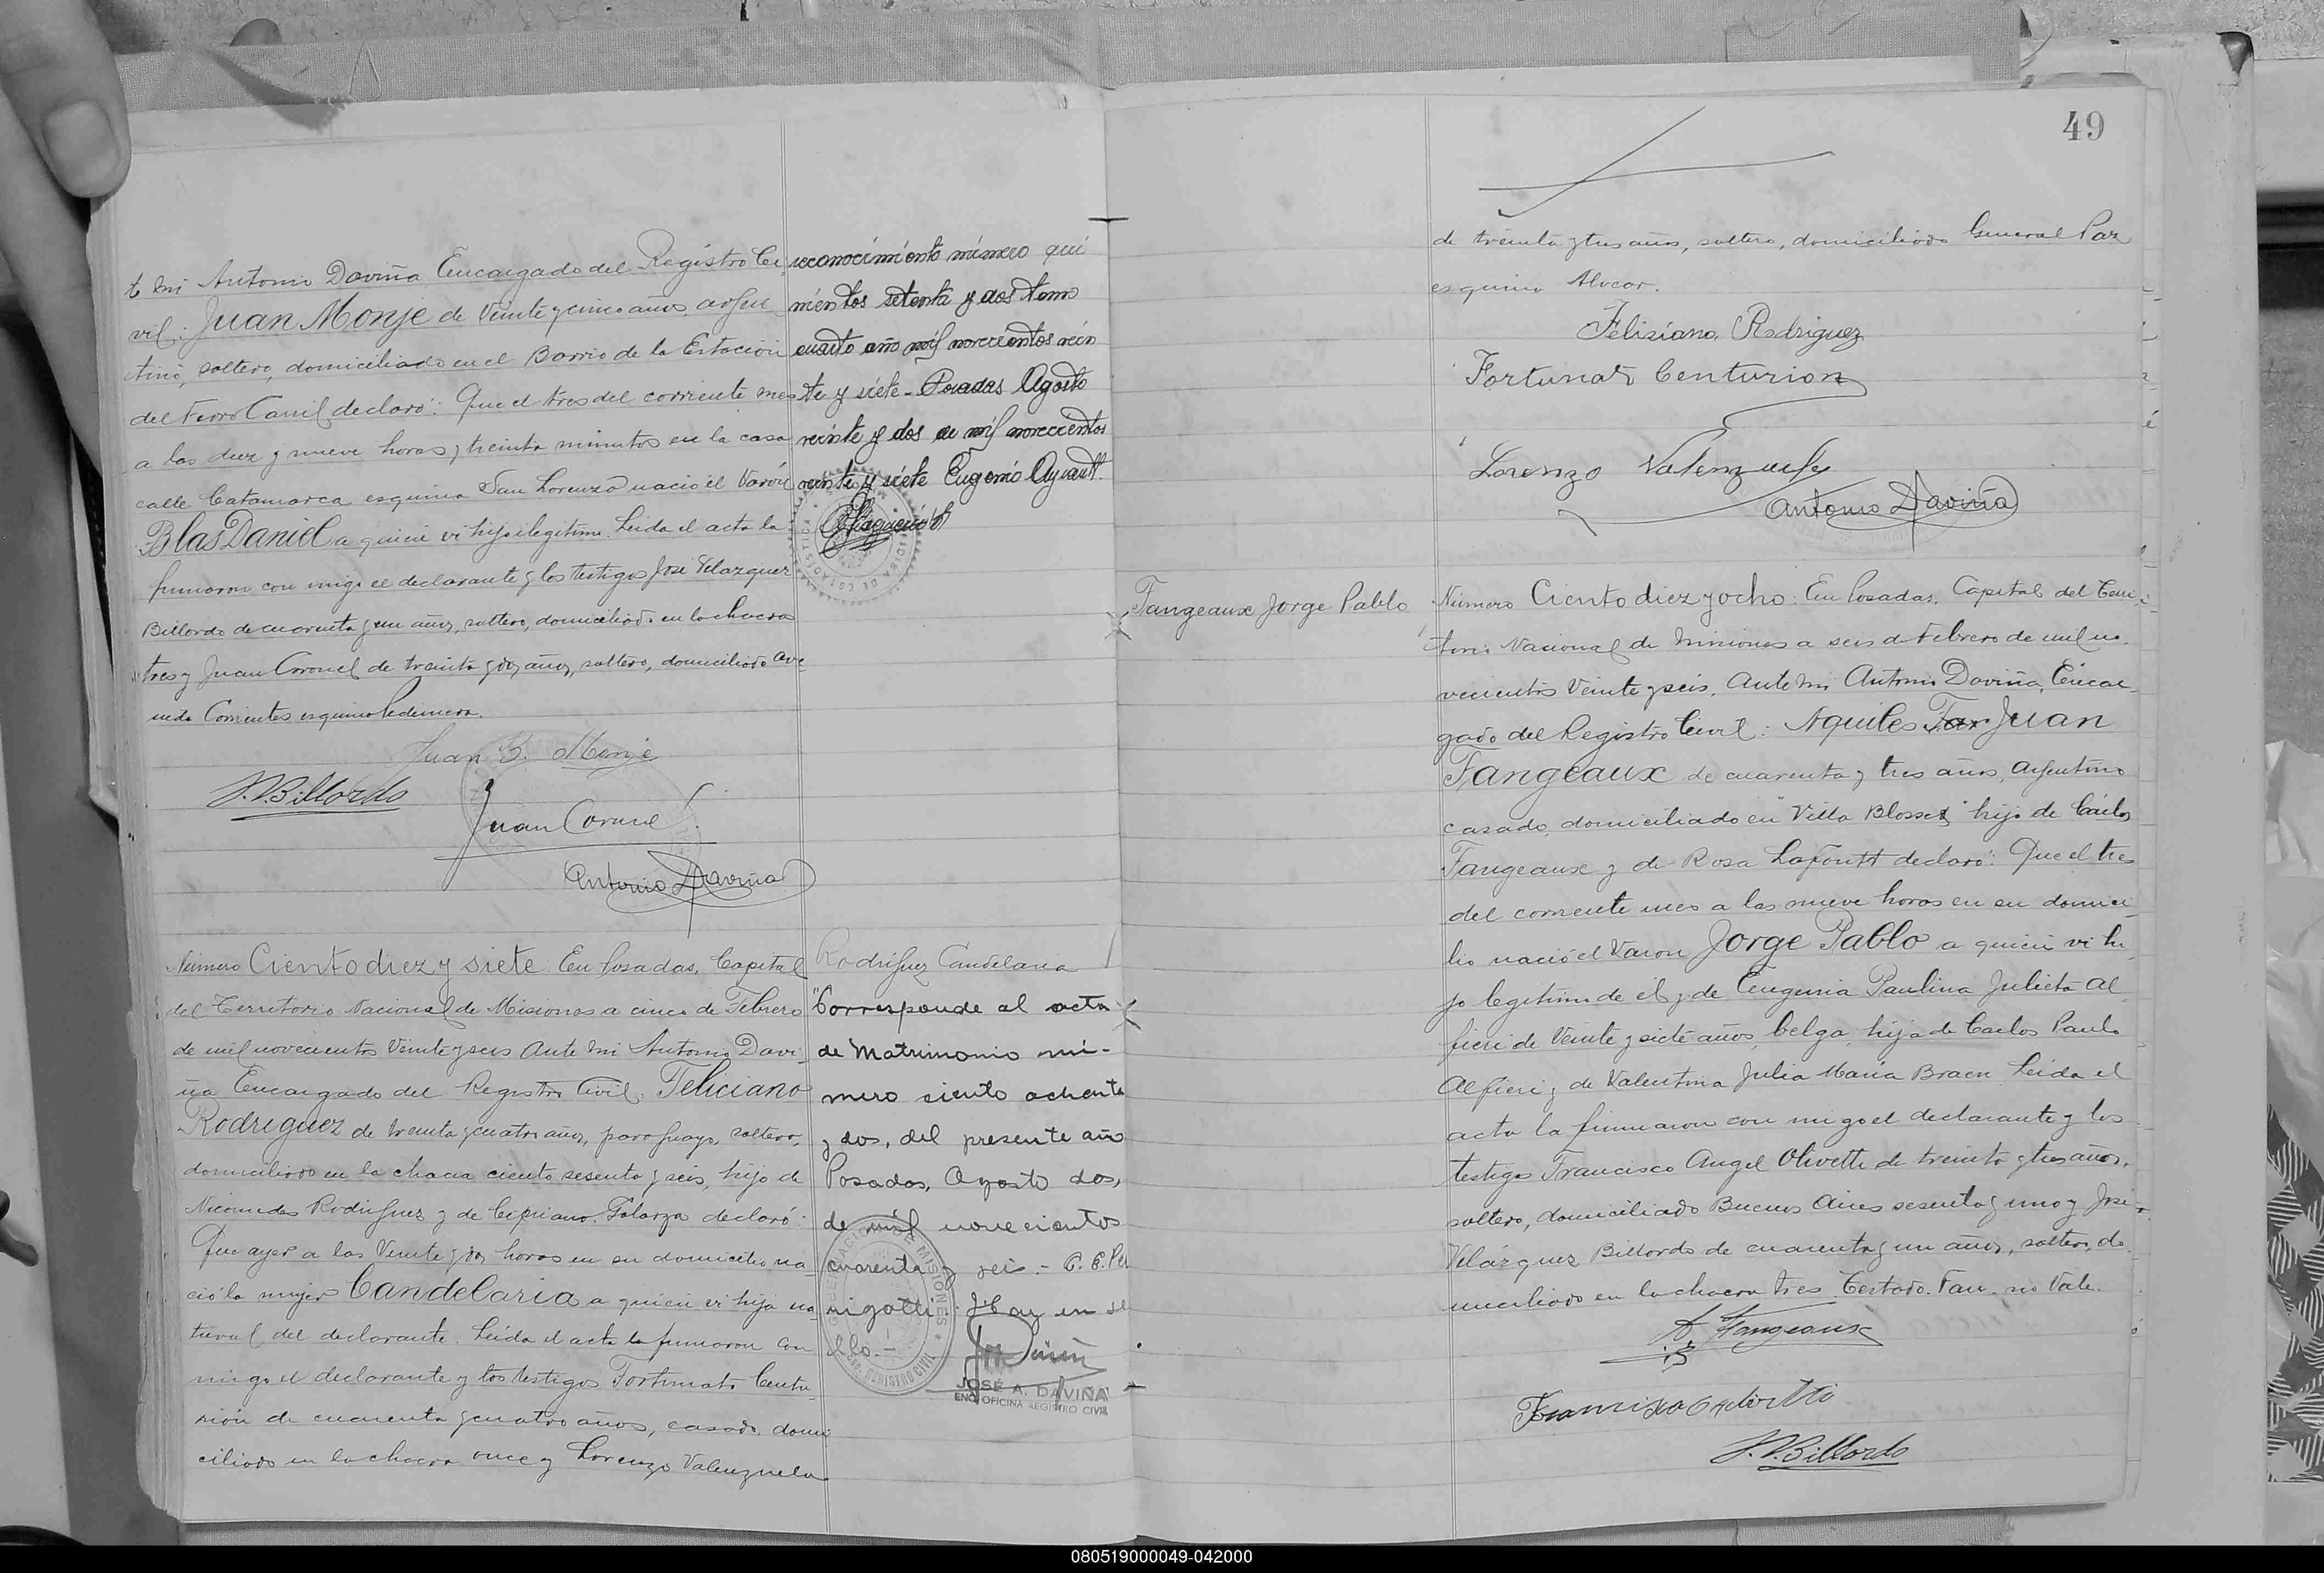 te mi Antonio Daviña Encargado del Registro Ci-
vil: Juan Monje de veinte y cinco años, argen
tino, soltero, domiciliado en el Barrio de la Estación
del Ferro Carril declaró: Que el tres del corriente mes
a las diez y nueve horas y treinta minutos en la casa
calle Catamarca esquina San Lorenzo nació el varón
Blas Daniel a quien vi hijo ilegítimo. Leida el acta la
firmaron con migo el declarante y los testigos José Velazquez
Billordo de cuarenta y un años, soltero, domiciliado en la chacra
tres y Juan Coronel de treinta y dos años, soltero, domiciliado Ave
nida Corrientes esquina Pedernera.
Juan B. Monje
J.V. Billordo
Juan Coronel
Antonio Daviña
reconocimiento número qui
nientos setenta y dos tomo
cuarto año mil novecientos vein
te y siete - Posadas Agosto
veinte y dos de mil novecientos
veinte y siete Eugenio Ayrault.
Número Ciento diez y siete: En Posadas, Capital
del Territorio Nacional de Misiones a cinco de Febrero
de mil novecientos veinte y seis Ante mi Antonio Davi
ña Encargado del Registro Civil: Feliciano
Rodriguez de treinta y cuatro años, paraguayo, soltero,
domiciliado en la chacra ciento sesenta y seis, hijo de
Nicomedes Rodriguez y de Cipriana Galarza declaró:
Que ayer a las veinte y dos horas en su domicilio na
ció la mujer Candelaria a quien vi hija na
tural del declarante. Leida el acta la firmaron con
migo el declarante y los testigos Fortunato Centu
rión de cuarenta y cuatro años, casado, domi
ciliado en la chacra once y Lorenzo Valenzuela
Rodriguez Candelaria
"Corresponde al acta
de Matrimonio nú-
mero siento ochenta
y dos, del presente año
Posadas, Agosto dos,
de mil novecientos
cuarenta y seis.- C. E. Pe
rigotti. Hay un se
llo.-
JOSÉ A. DAVIÑA
ENC. OFICINA REGISTRO CIVIL
49
de treinta y tres años, soltero, domiciliado General Paz
esquina Alvear.
Felisiano Rodriguez
Fortunato Centurion
Lorenzo Valenzuela
Antonio Daviña
Fangeaux Jorge Pablo
Número Ciento diez y ocho: En Posadas, Capital del Terri
torio Nacional de Misiones a seis de Febrero de mil no
vecientos veinte y seis, Ante mi Antonio Daviña, Encar
gado del Registro Civil: Aquiles Fan Juan
Fangeaux de cuarenta y tres años, argentino
casado, domiciliado en "Villa Blosset" hijo de Carlos
Fangeaux y de Rosa Lafontt declaró: Que el tres
del corriente mes a las nueve horas en su domici
lio nació el varon Jorge Pablo a quien vi hi
jo legítimo de él y de Eugenia Paulina Julieta Al
fieri de veinte y siete años, belga, hija de Carlos Paulo
Alfieri y de Valentina Julia María Braen. Leida el
acta la firmaron con migo el declarante y los
testigos Francisco Angel Olivetti de treinta y tres años,
soltero, domiciliado Buenos Aires sesenta y uno y José
Velázquez Billordo de cuarenta y un años, soltero, do
miciliado en la chacra tres. Testado. Fan. no vale.
A. Fangeaux
Francisco A Olivetti
J.V. Billordo
080519000049-042000